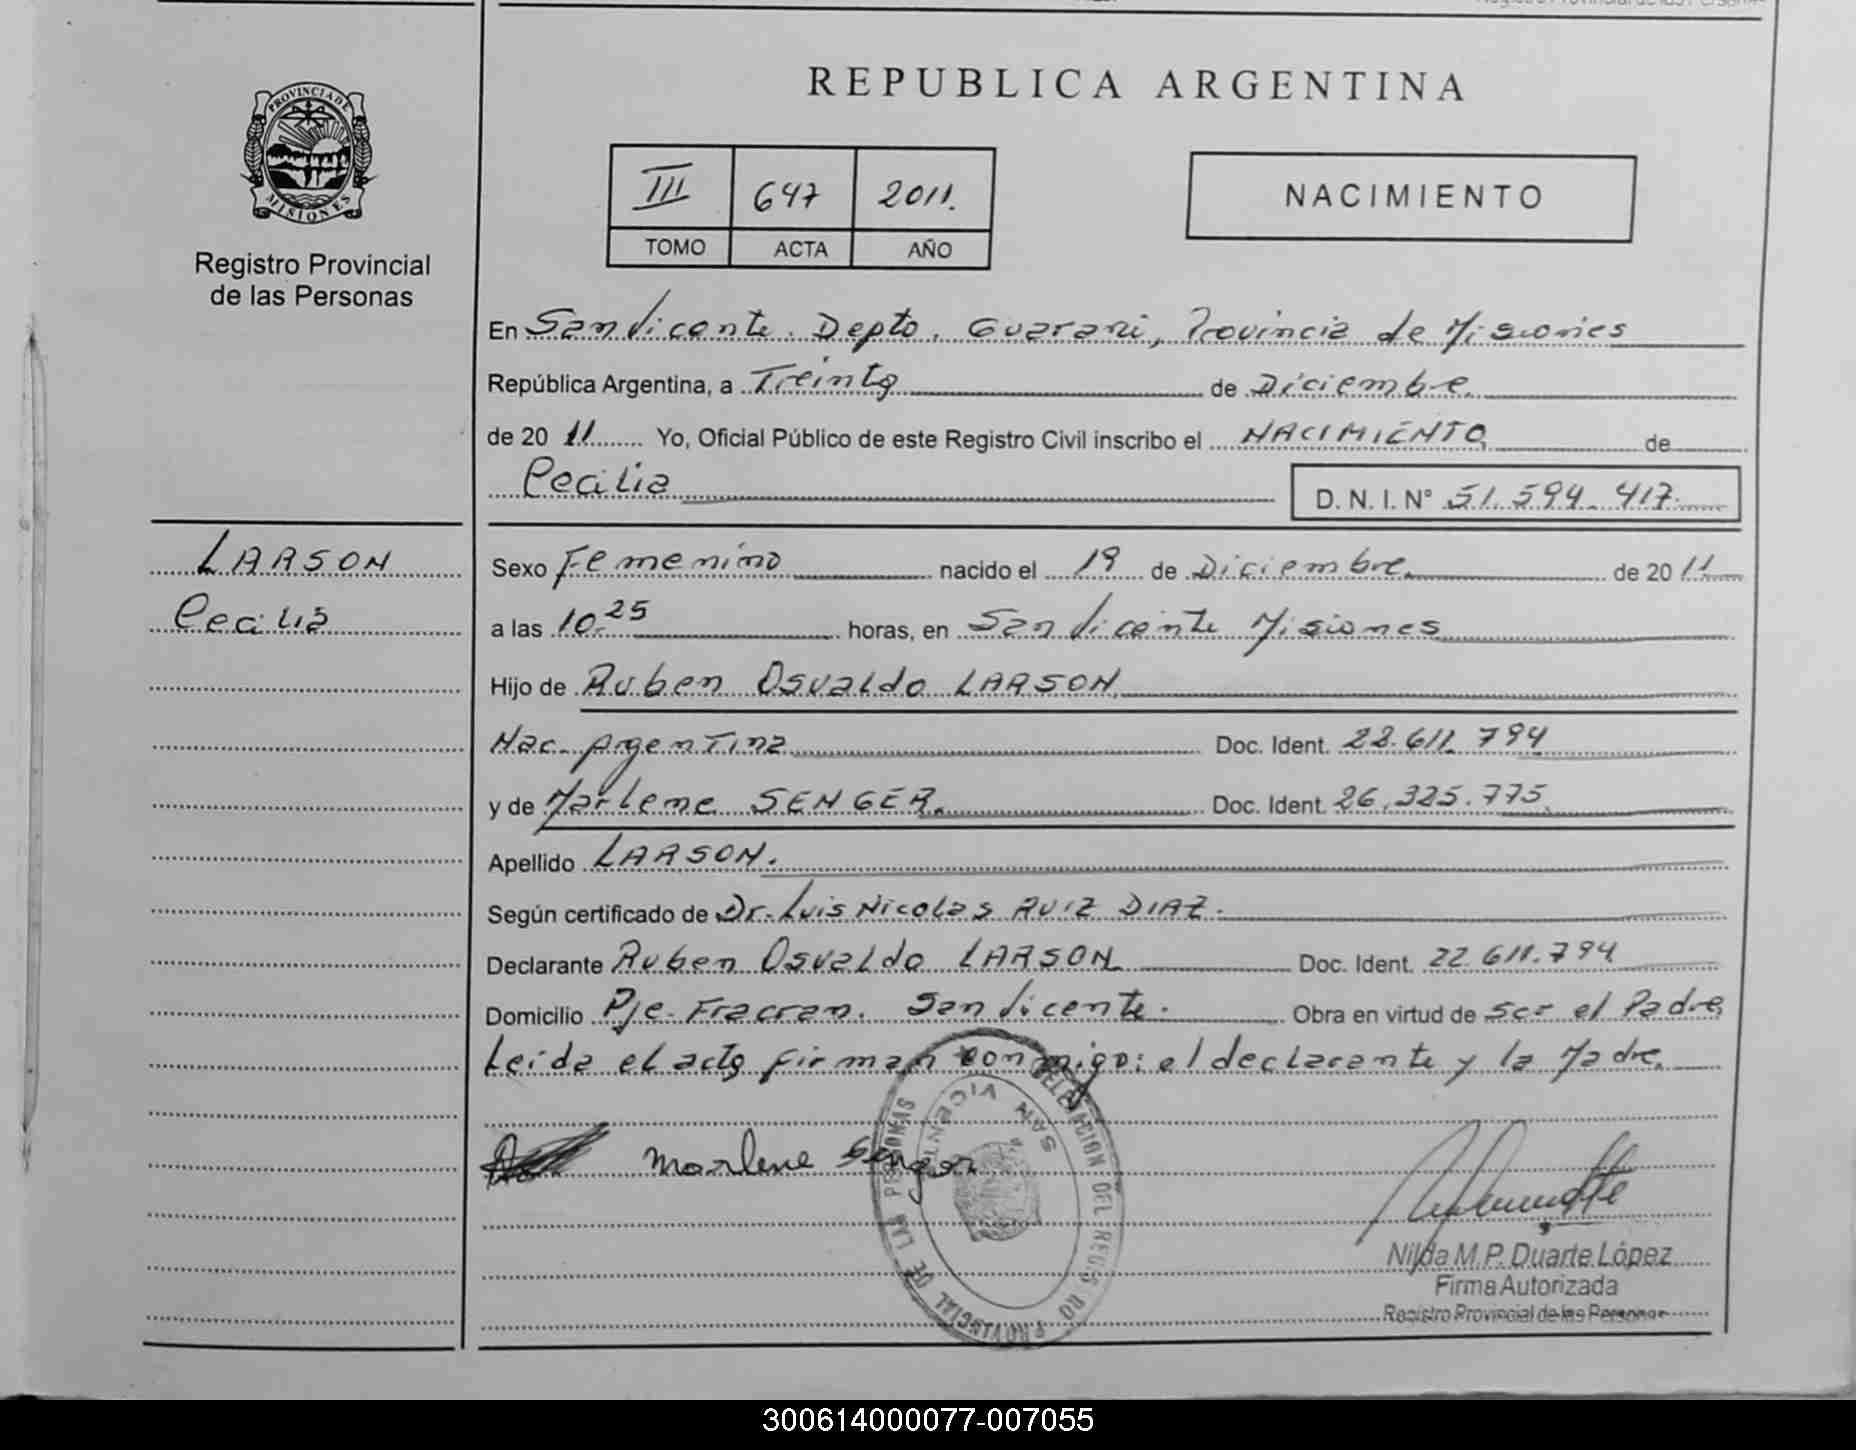 REPUBLICA ARGENTINA
PROVINCIA DE
MISIONES
Registro Provincial
de las Personas
III 647 2011.
TOMO ACTA AÑO
NACIMIENTO
En San Vicente. Depto. Guarani, Provincia de Misiones
República Argentina, a Treinta de Diciembre
de 20 11 Yo, Oficial Público de este Registro Civil inscribo el NACIMIENTO de
Cecilia D. N. I. Nº 51.594.417
LARSON
Cecilia
Sexo Femenino nacido el 19 de Diciembre de 20 11
a las 10.25 horas, en San Vicente Misiones
Hijo de Ruben Osvaldo LARSON
Nac. Argentina Doc. Ident. 22.611.794
y de Marlene SENGER. Doc. Ident. 26.325.775
Apellido LARSON.
Según certificado de Dr. Luis Nicolas RUIZ DIAZ.
Declarante Ruben Osvaldo LARSON Doc. Ident. 22.611.794
Domicilio Pje. Fracran. San Vicente. Obra en virtud de ser el Padre
Leida el acta firman conmigo: el declarante y la Madre.
Marlene Senger
DELEGACION DEL REGISTRO PROVINCIAL DE LAS PERSONAS
SAN VICENTE
Nilda M. P. Duarte López
Firma Autorizada
Registro Provincial de las Personas
300614000077-007055